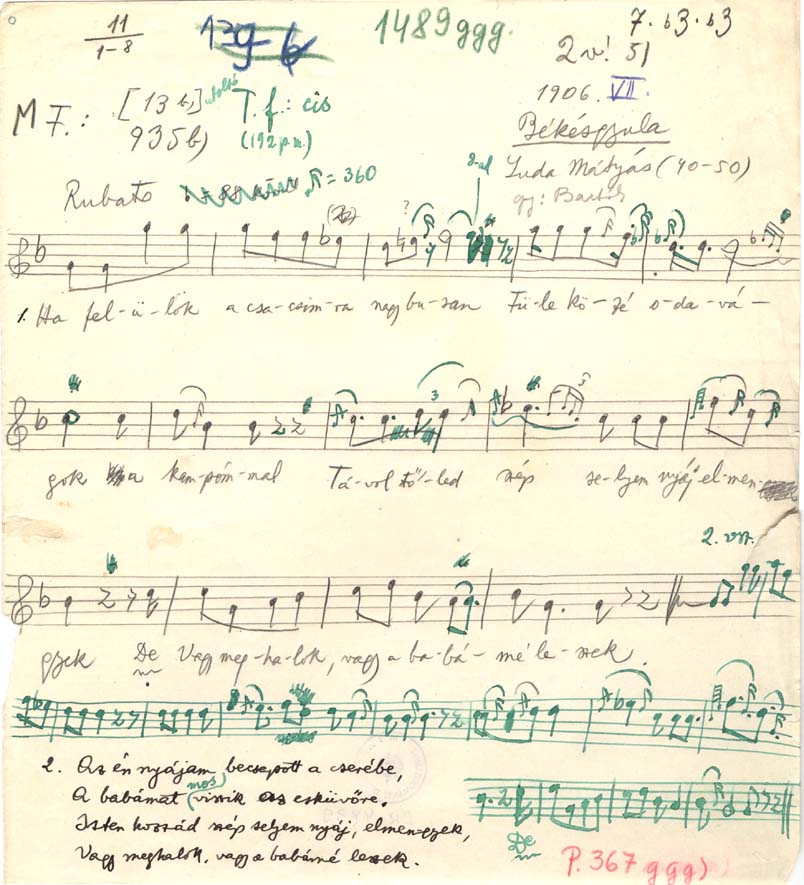 11
1-8
139 b
1489ggg.
7. b3. b3
2 v! 51
1906. VII.
M F.: [13 b,] utolsó
935b)
T. f.: cis
(192 p. m.)
Békésgyula
Luda Mátyás (40-50)
gy: Bartók
Rubato
♪ = 360
1. Ha fel-ü-lök a csa-csim-ra nagy bu-san Fü-le kö-zé o-da-vá-
gok a kam-póm-mal Tá-vol tő-led szép se-lyem nyáj el-men-
2. vsz.
gyek De Vagy meg-ha-lok, vagy a ba-bá-mé le-szek.
2. Az én nyájam becsapott a cserébe,
A babámat (mos) viszik az esküvőre.
Isten hozzád szép selyem nyáj, elmengyek,
Vagy meghalok, vagy a babámé leszek.
De
P. 367 ggg)